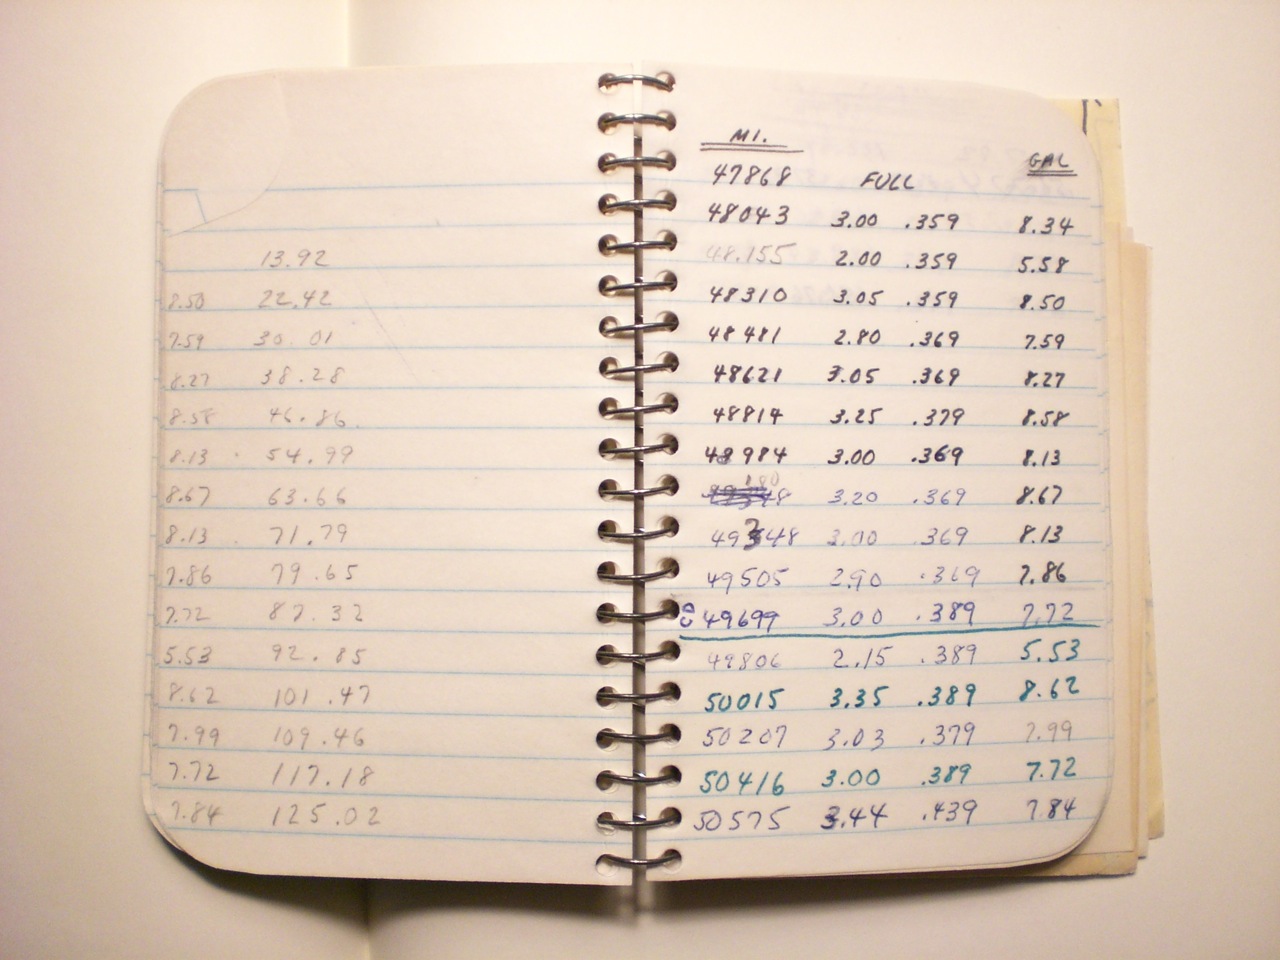 13.92
8.50 22.42
7.59 30.01
8.27 38.28
8.58 46.86
8.13 54.99
8.67 63.66
8.13 71.79
7.86 79.65
7.72 87.32
5.53 92.85
8.62 101.47
7.99 109.46
7.72 117.18
7.84 125.02
MI. GAL
47868 FULL
48043 3.00 .359 8.34
48.155 2.00 .359 5.58
48310 3.05 .359 8.50
48481 2.80 .369 7.59
48621 3.05 .369 8.27
48814 3.25 .379 8.58
48984 3.00 .369 8.13
180
3.20 .369 8.67
49348 3.00 .369 8.13
49505 2.90 .369 7.86
49699 3.00 .389 7.72
49806 2.15 .389 5.53
50015 3.35 .389 8.62
50207 3.03 .379 7.99
50416 3.00 .389 7.72
50575 3.44 .439 7.84